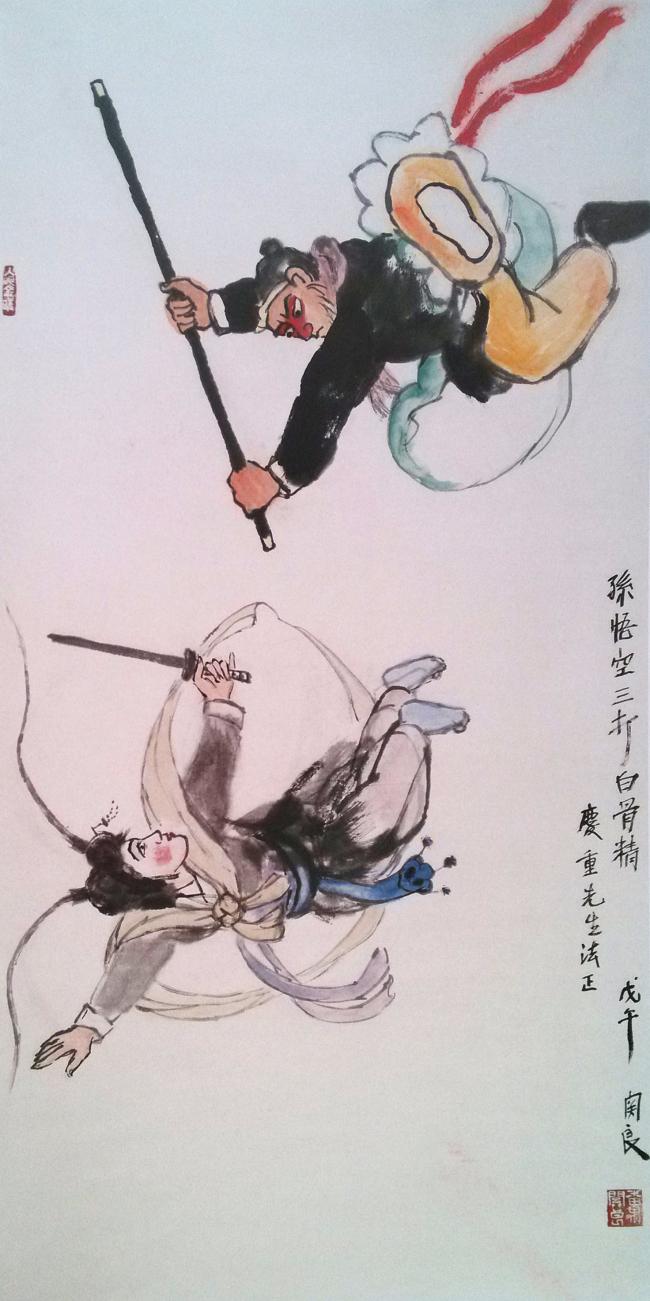 孫悟空三打白骨精
慶重先生法正
戊午 関良